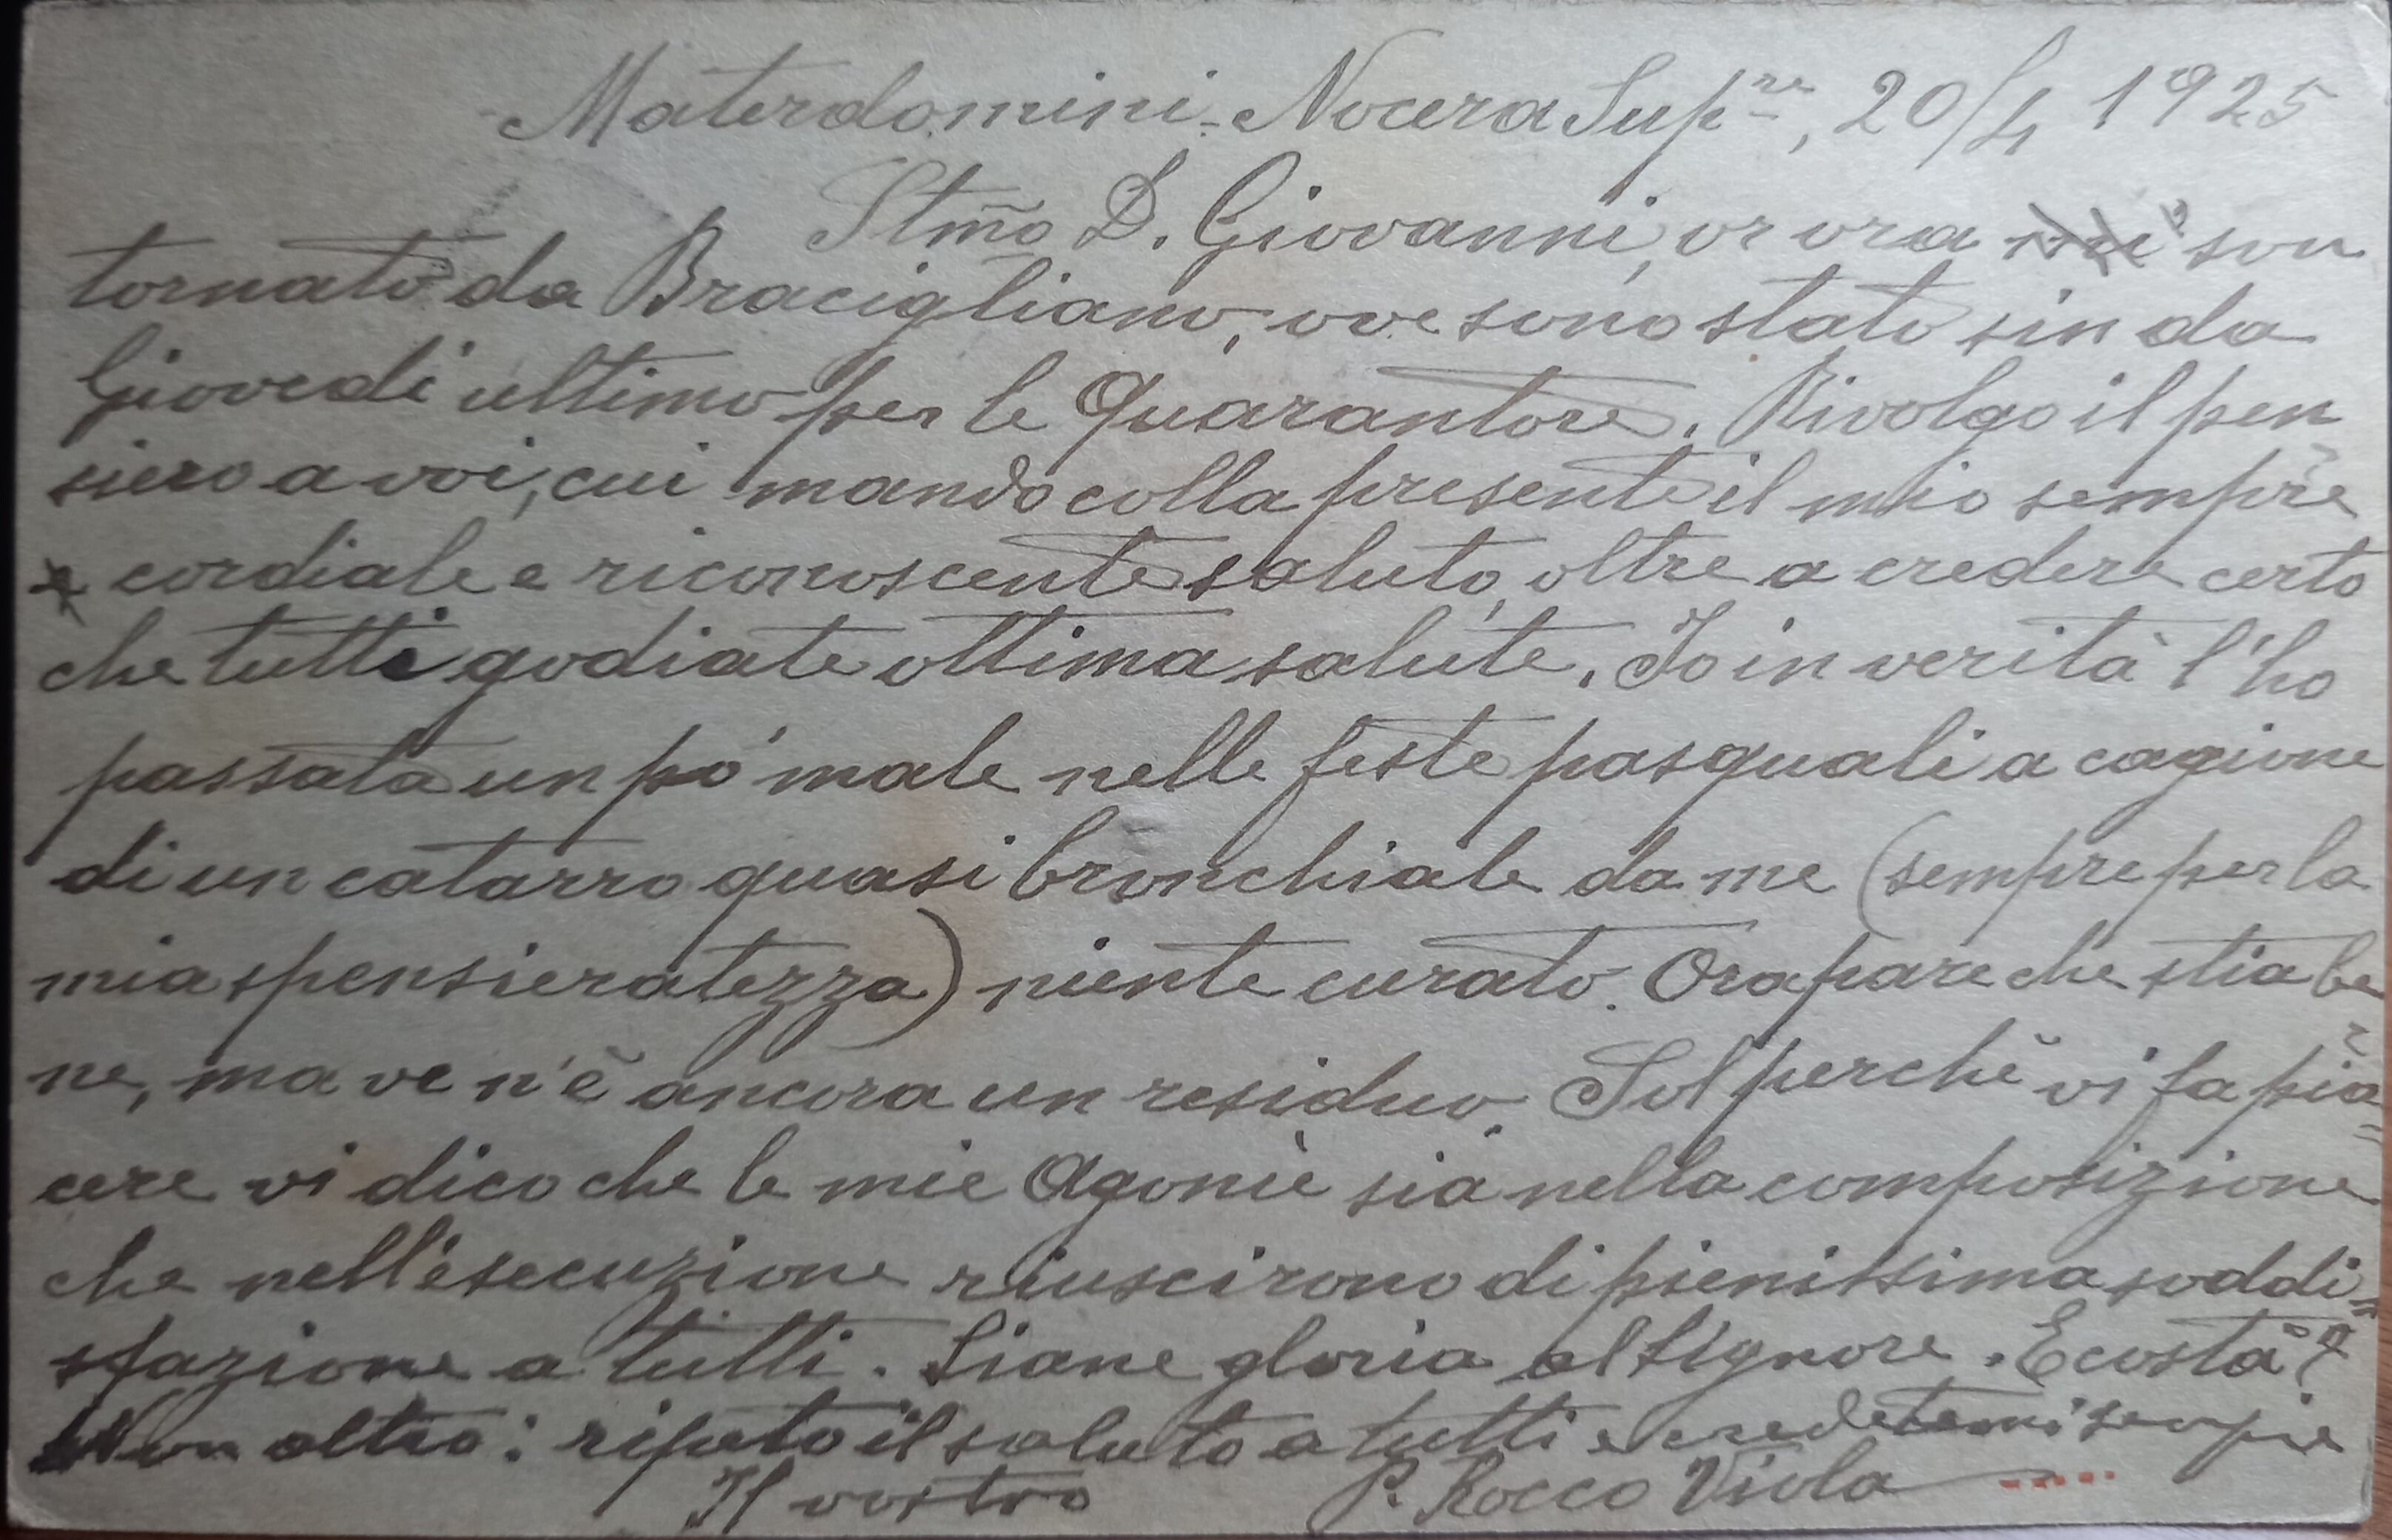 Materdomini - Nocera Sup.re, 20/4 1925
Stmo D. Giovanni, or ora son
tornato da Bracigliano, ove sono stato sin da
Giovedì ultimo per le Quarantore. Rivolgo il pen
siero a voi, cui mando colla presente il mio sempre
cordiale e riconoscente saluto, oltre a credere certo
che tutti godiate ottima salute. Io in verità l'ho
passata un pò male nelle feste pasquali a cagione
di un catarro quasi bronchiale da me (sempre per la
mia spensieratezza) niente curato. Ora pare che stia be
ne, ma ve n'è ancora un residuo. Sol perchè vi fa pia=
cere vi dico che le mie Agonie sia nella composizione
che nell'esecuzione riuscirono di pienissima soddi=
sfazione a tutti. Siane gloria al Signore. E costà?
Non altro: ripeto il saluto a tutti e credetemi sempre
Il vostro P. Rocco Viola